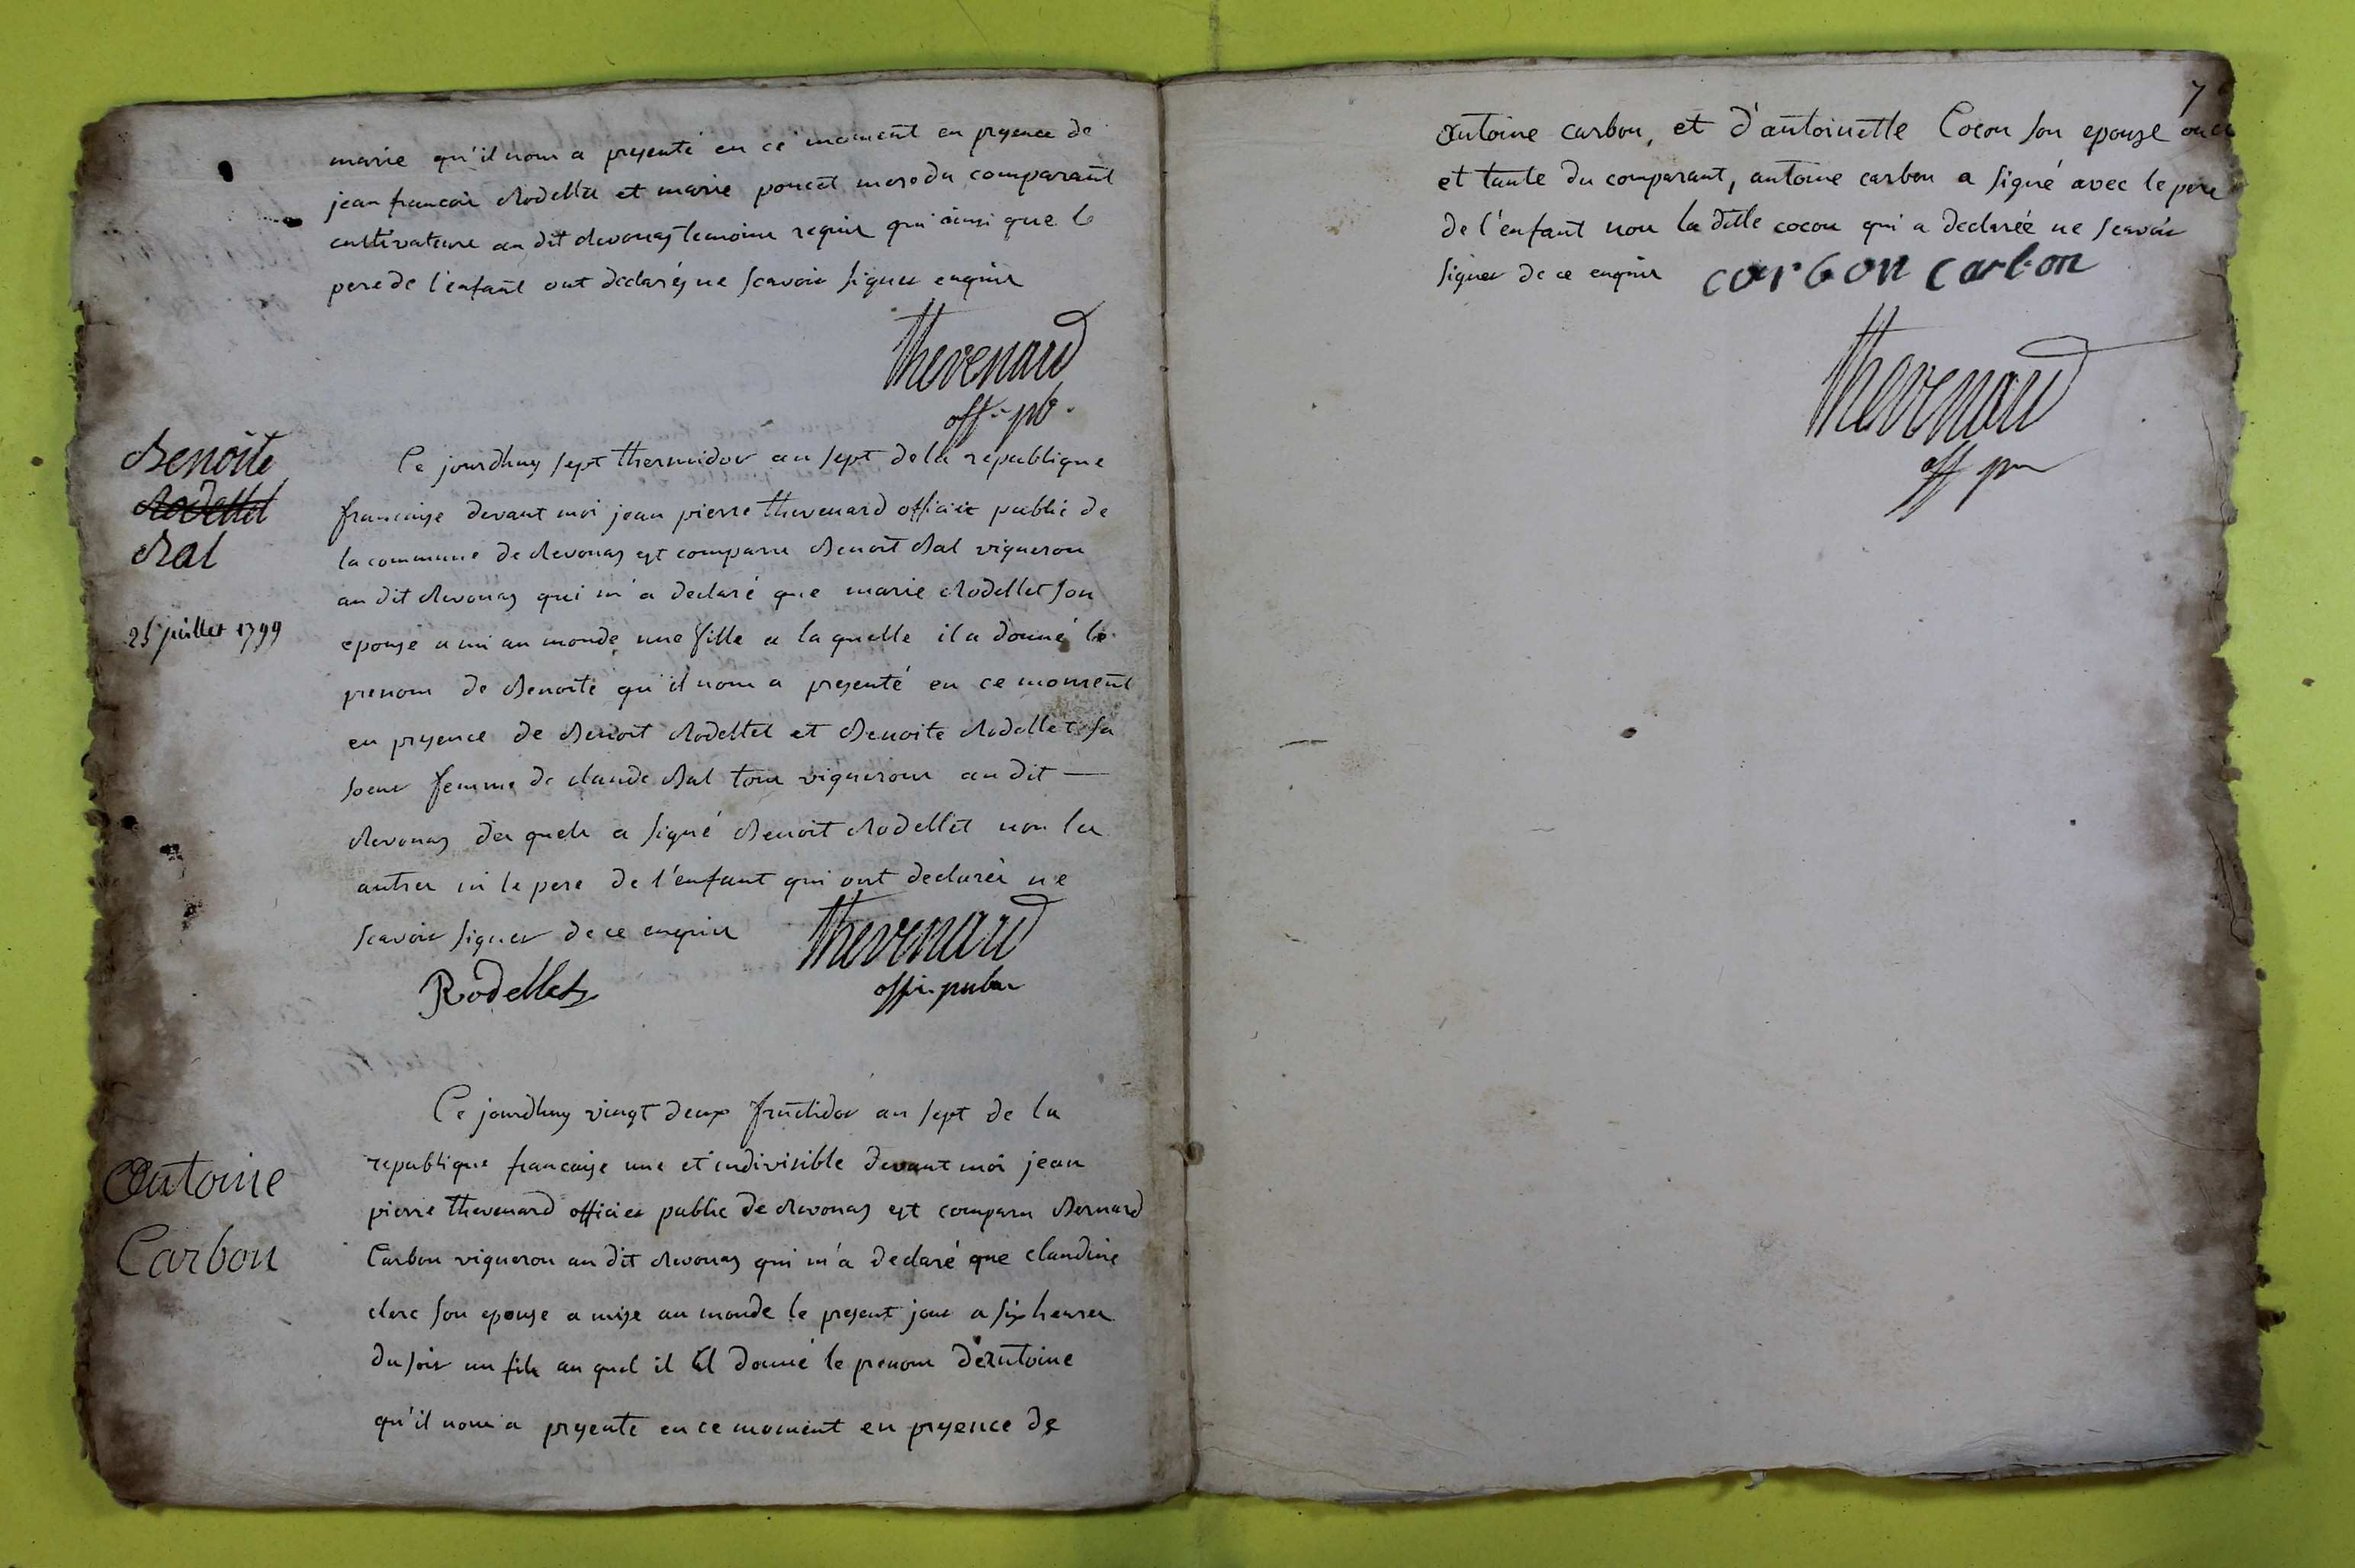 marie qu'il nous a presenté en ce moment en presence de
jean francois Rodellet et marie poncet mere du comparant
cultivateurs au dit Revonas temoins requis qui ainsi que le
pere de l'enfant ont declarés ne scavoir signer enquis
Thevenard
off. pb.
Benoîte
Rodellet
Ral
25 juillet 1799
Ce jourdhuy sept thermidor an sept de la republique
francaise devant moi jean pierre thevenard officier public de
la commune de Revonas est comparu Benoit Ral vigneron
au dit Revonas qui m'a declaré que marie Rodellet son
epouse a mis au monde une fille a la quelle il a donné le
prenom de Benoite qu'il nous a presenté en ce moment
en presence de Benoit Rodellet et Benoite Rodellet sa
soeur femme de claude Ral tous vignerons au dit —
Revonas des quels a signé Benoit Rodellet non les
autres ni le pere de l'enfant qui ont declarés ne
scavoir signer de ce enquis
Thevenard
Rodellet
offi. public
Antoine
Carbon
Ce jourdhuy vingt deux fructidor an sept de la
republique francaise une et indivisible devant moi jean
pierre thevenard officier public de Revonas est comparu Bernard
Carbon vigneron au dit Revonas qui m'a declaré que claudine
clerc son epouse a mise au monde le present jour a six heures
du soir un fils au quel il a donné le prenom d'antoine
qu'il nous a presenté en ce moment en presence de
7
antoine carbon, et d'antoinette Cocon son epouse oncle
et tante du comparant, antoine carbon a signé avec le pere
de l'enfant non la ditte cocon qui a declarée ne scavoir
signer de ce enquis carbon carbon
Thevenard
off